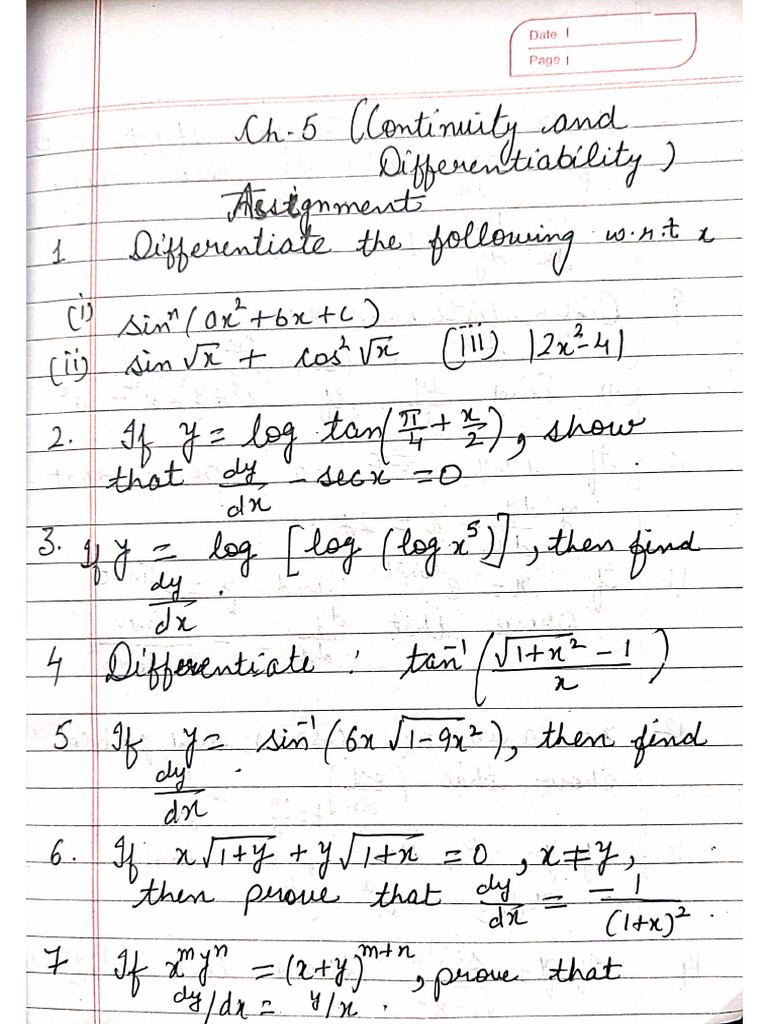 Date |
Page |
Ch-5 (Continuity and
Differentiability)
Assignment
1 Differentiate the following w.r.t x
(i) sinⁿ(ax²+bx+c)
(ii) sin √x + cos² √x (iii) |2x²-4|
2. If y = log tan(π/4 + x/2), show
that dy/dx - sec x = 0
3. If y = log [log (log x⁵)], then find
dy/dx .
4 Differentiate : tan⁻¹ (√(1+x²) - 1 / x)
5 If y = sin⁻¹(6x √(1-9x²)), then find
dy/dx .
6. If x√(1+y) + y√(1+x) = 0 , x≠y,
then prove that dy/dx = -1/(1+x)² .
7 If xᵐyⁿ = (x+y)ᵐ⁺ⁿ, prove that
dy/dx = y/x .